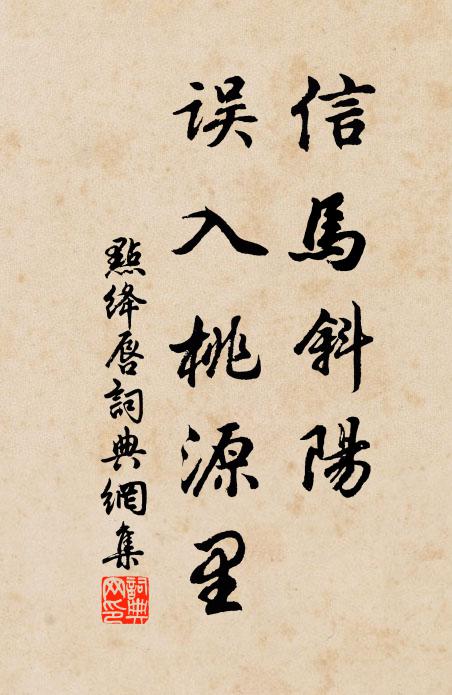 信馬斜陽
误入桃源里
點绛唇詞典網集
詞典网印